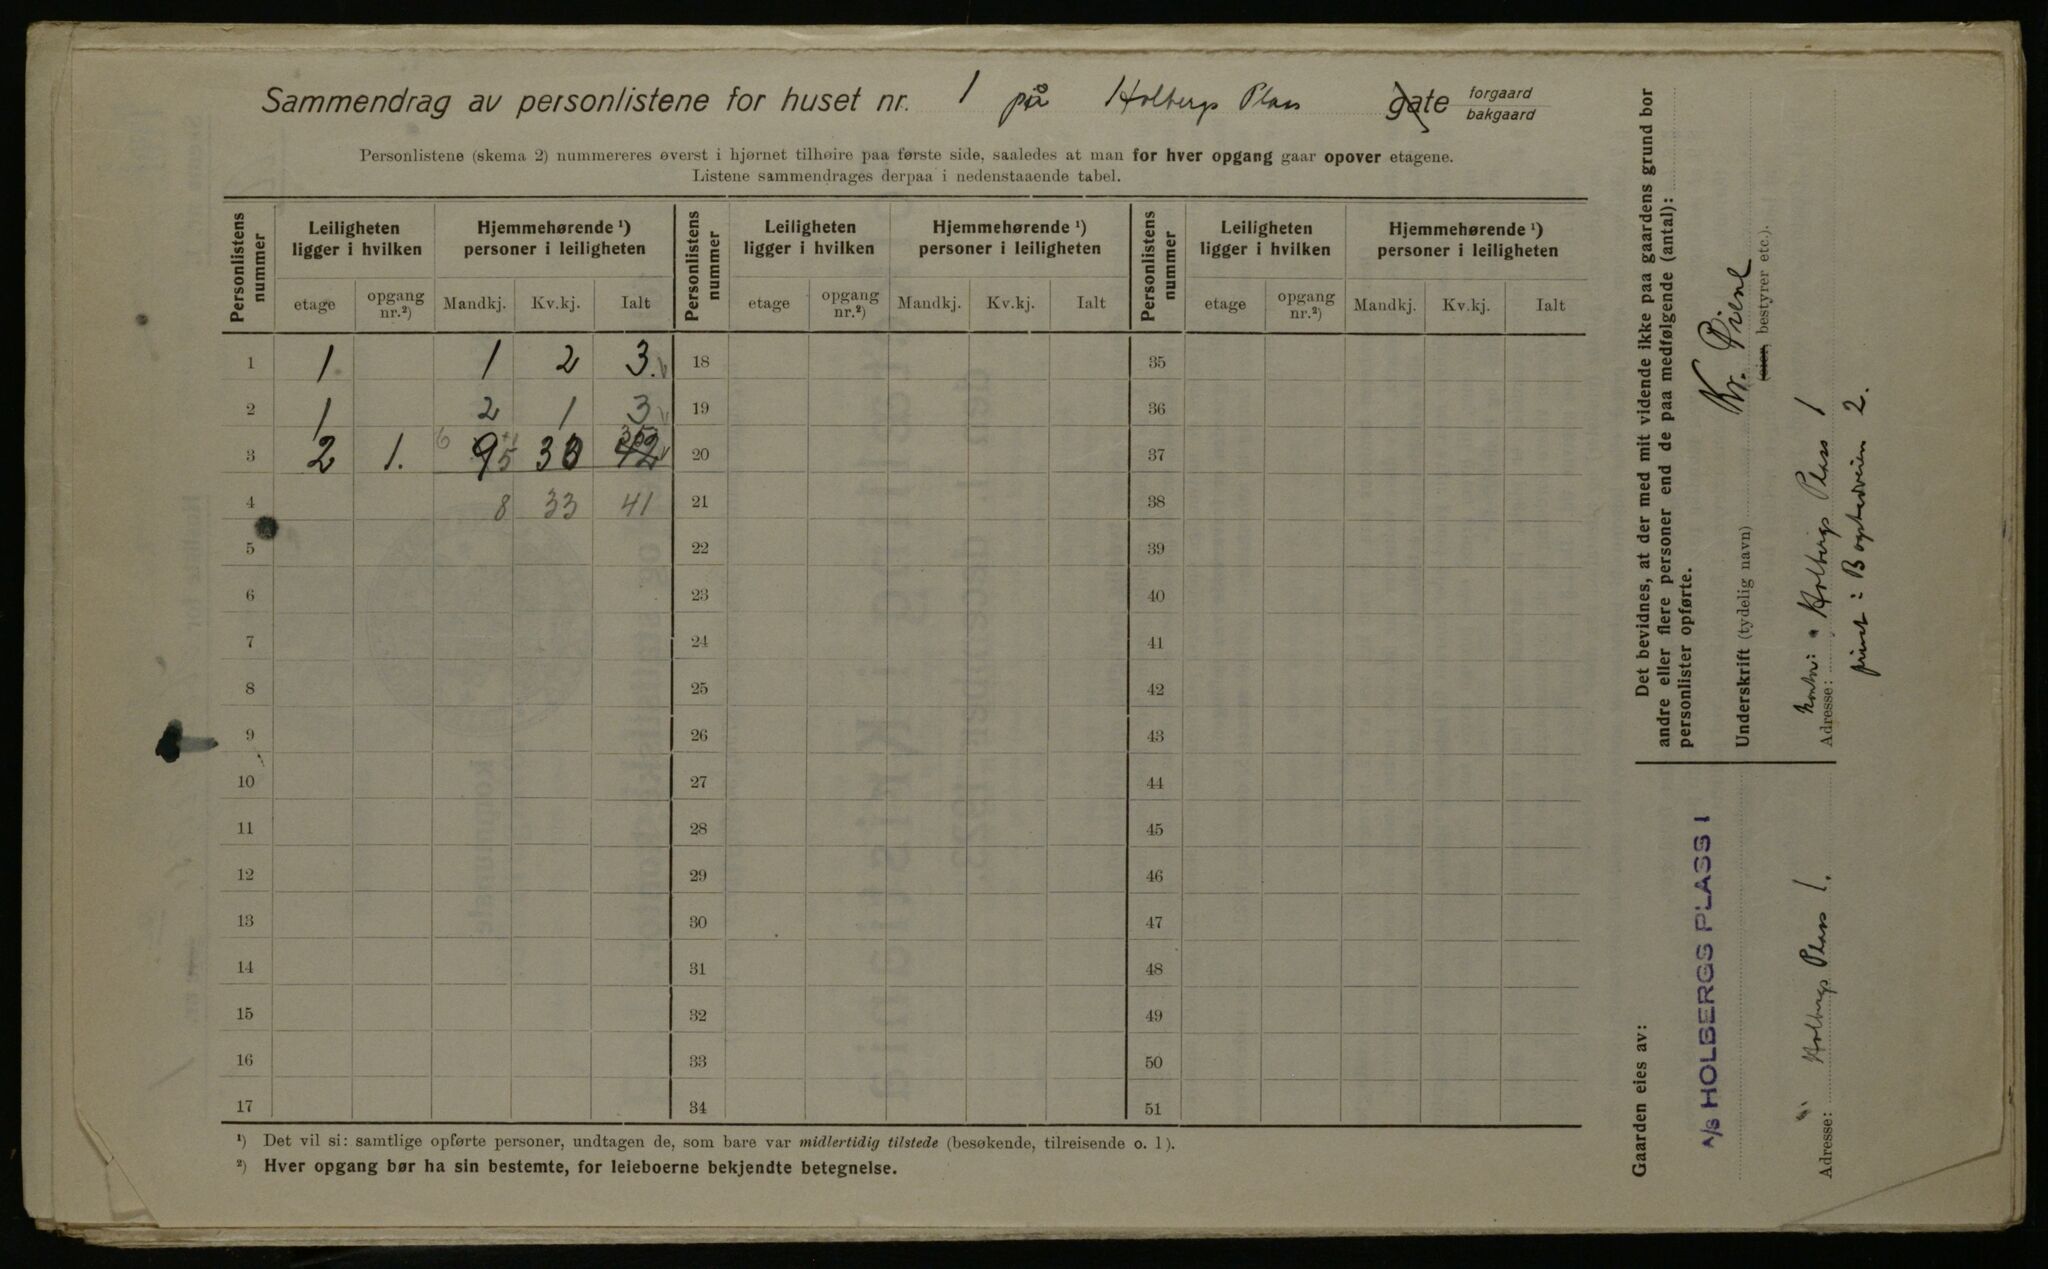 Sammendrag av personlistene for huset nr. 1 på Holbergs Plass gate forgaard bakgaard
Personlistene (skema 2) nummereres øverst i hjørnet tilhøire paa første side, saaledes at man for hver opgang gaar opover etagene.
Listene sammendrages derpaa i nedenstaaende tabel.
Personlistens nummer | Leiligheten ligger i hvilken | Hjemmehørende ¹) personer i leiligheten | Personlistens nummer | Leiligheten ligger i hvilken | Hjemmehørende ¹) personer i leiligheten | Personlistens nummer | Leiligheten ligger i hvilken | Hjemmehørende ¹) personer i leiligheten
etage | opgang nr.²) | Mandkj. | Kv.kj. | Ialt | etage | opgang nr.²) | Mandkj. | Kv.kj. | Ialt | etage | opgang nr.²) | Mandkj. | Kv.kj. | Ialt
1 | 1 | | 1 | 2 | 3. | 18 | 35
2 | 1 | | 2 | 1 | 3 | 19 | 36
3 | 2 | 1. | 6 9 5 | 30 | 35 42 | 20 | 37
4 | | | 8 | 33 | 41 | 21 | 38
5 | 22 | 39
6 | 23 | 40
7 | 24 | 41
8 | 25 | 42
9 | 26 | 43
10 | 27 | 44
11 | 28 | 45
12 | 29 | 46
13 | 30 | 47
14 | 31 | 48
15 | 32 | 49
16 | 33 | 50
17 | 34 | 51
¹) Det vil si: samtlige opførte personer, undtagen de, som bare var midlertidig tilstede (besøkende, tilreisende o. l).
²) Hver opgang bør ha sin bestemte, for leieboerne bekjendte betegnelse.
Det bevidnes, at der med mit vidende ikke paa gaardens grund bor
andre eller flere personer end de paa medfølgende (antal):
personlister opførte.
Underskrift (tydelig navn) Kr. Piene
(eier, bestyrer etc.).
kontor: Adresse: Holbergs Plass 1
privat: Bogstadveien 2.
Gaarden eies av:
A/S HOLBERGS PLASS 1
Adresse: Holbergs Plass 1.